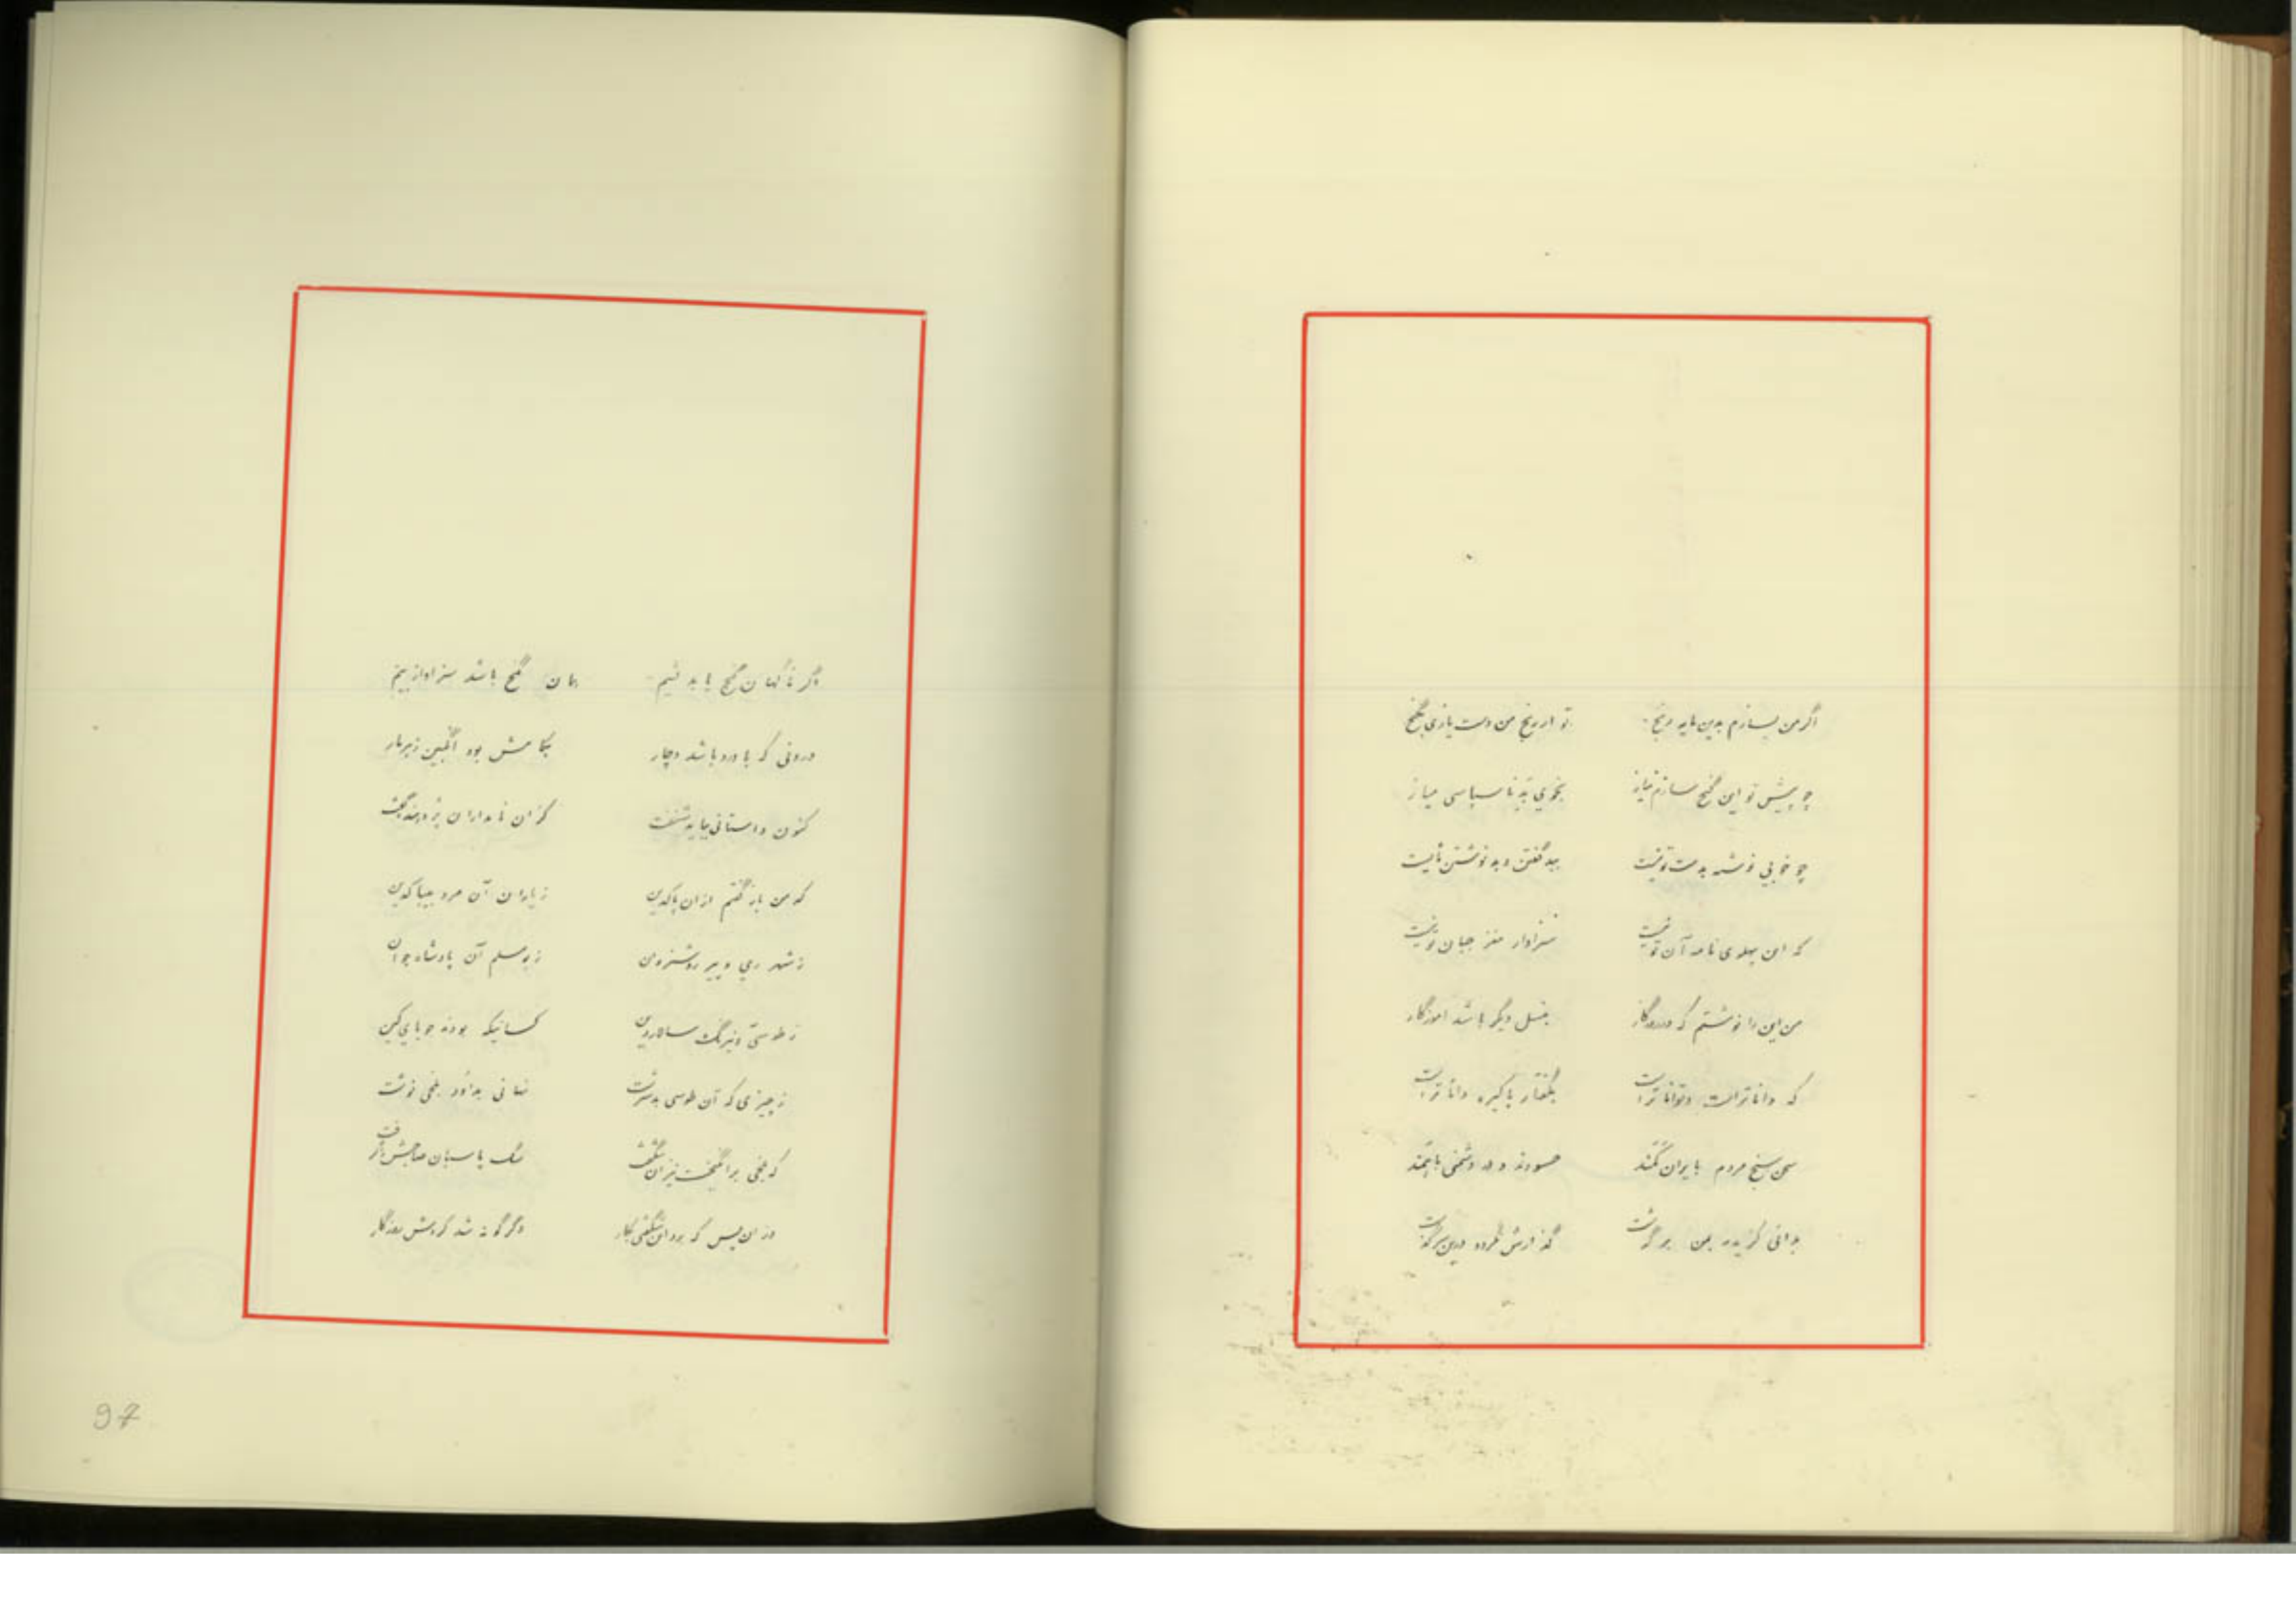 اگر من بسازم بدین مایه رنج تو از رنج من دست یازی بگنج
چو پیش تو این گنج سازم نیاز بخوی بد ناسپاسی میاز
چو خوبی نوشته بدست تو نیست ببد گفتن و بد نوشتن مایست
که این پهلوی نامه آن تو نیست سزاوار مغز جهان تو نیست
من این را نوشتم که در روزگار بنسل دگر باشد آموزگار
که داناتر است و تواناتر است بگفتار پاکیزه داناتر است
سخن سنج مردم بایران کمند حسودند و در دشمنی باهمند
بدانی گزیده بمن بر گذشت گذارش نگردد درین سرگذشت
اگر ناگهان گنج یابد لئیم همان گنج باشد سزاوار بیم
درونی که با درد باشد دچار بکامش بود انگبین زهرمار
کنون داستانی بباید شنفت کزان نامداران پژوهنده گفت
که من باز گفتم ازان پاکدین ز یاران آن مرد بیباکدین
ز شهر ری و پیر روشنروان ز بومسلم آن پادشاه جوان
ز طوسی و نیرنگ سالار دین کسانیکه بودند جویای کین
ز چیزی که آن طوسی بدسرشت نهانی بداود بلخی نوشت
که بلخی برانگیخت نیز آن شگفت سگ پاسبان صاحبش را گرفت
وزان پس که بود آن شگفتی بکار دگرگونه شد گردش روزگار
97